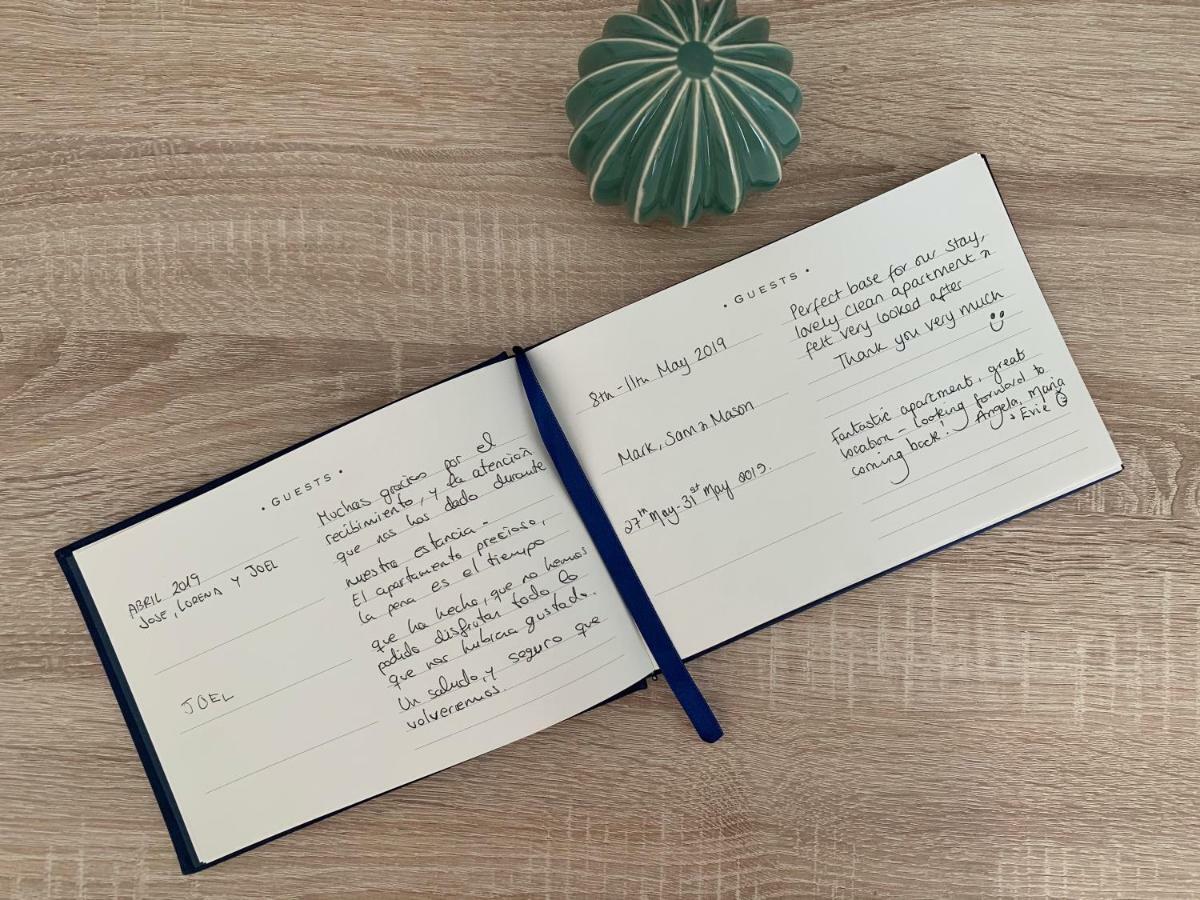 • GUESTS •
ABRIL 2019
JOSE, LORENA Y JOEL
JOEL
Muchas gracias por el
recibimiento, y la atención
que nos has dado durante
nuestra estancia -
El apartamento precioso,
la pena es el tiempo
que ha hecho, que no hemos
podido disfrutar todo lo
que nos hubiera gustado.
Un saludo, y seguro que
volveremos.
• GUESTS •
8th - 11th May 2019
Mark, Sam & Mason
27th May - 31st May 2019.
Perfect base for our stay,
lovely clean apartment &
felt very looked after
Thank you very much
Fantastic apartment, great
location - looking forward to
coming back! Angela, Maria
& Evie